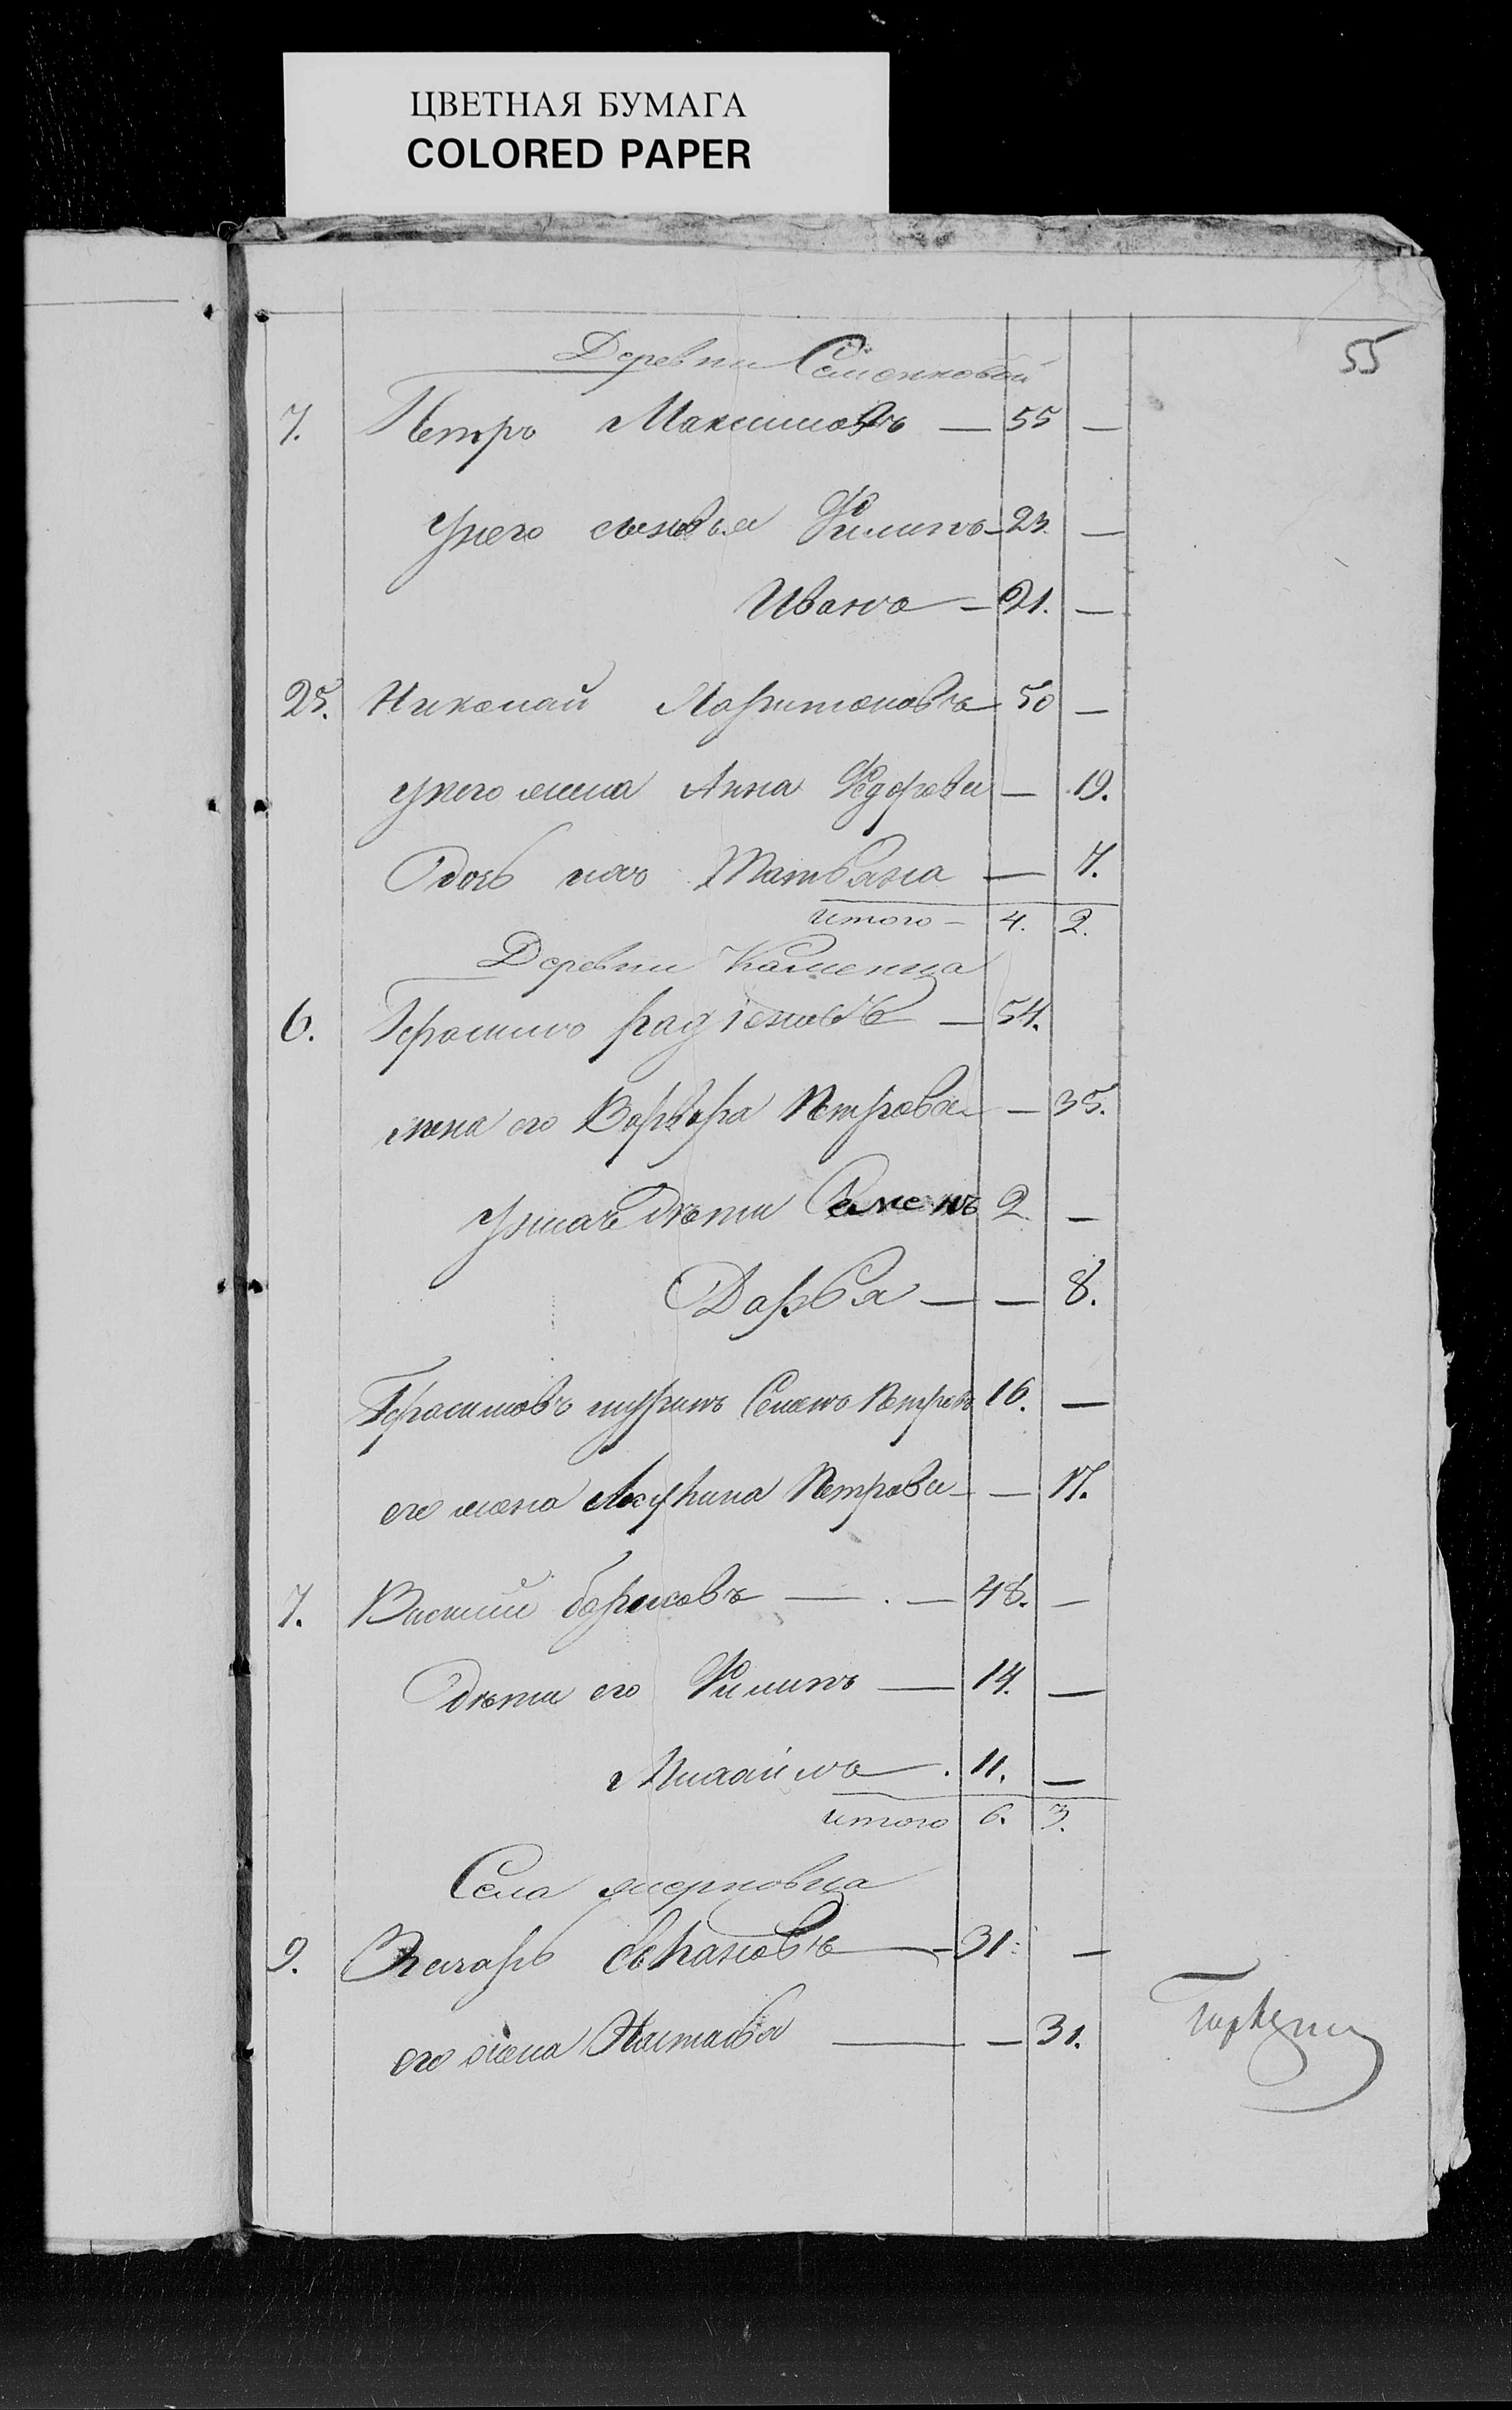 ЦВЕТНАЯ БУМАГА
COLORED PAPER
55
Деревни Семенковой
7. Петръ Максимовъ — 55 —
Унего сыновья Филипъ — 23. —
Иванъ — 21. —
25. Николай Харитоновъ — 50 —
унего жена Анна Федорова — 19.
Дочь ихъ Татьяна — 7.
итого — 4. 2.
Деревни Каменца
6. Герасимъ Радіоновъ — 54.
жена его Варвара Петрова — 35.
Унихъ дѣти Семенъ 2 —
Дарья — — 8.
Герасимовъ шуринъ Семенъ Петровъ 16. —
его жена Акулина Петрова — — 17.
7. Василій Борисовъ — . — 48. —
дѣти его Филипъ — 14. —
Михайлъ — . 11. —
итого 6. 3.
Села жерновца
9. Захаръ — 31. —
его жена Настасья — — 31.